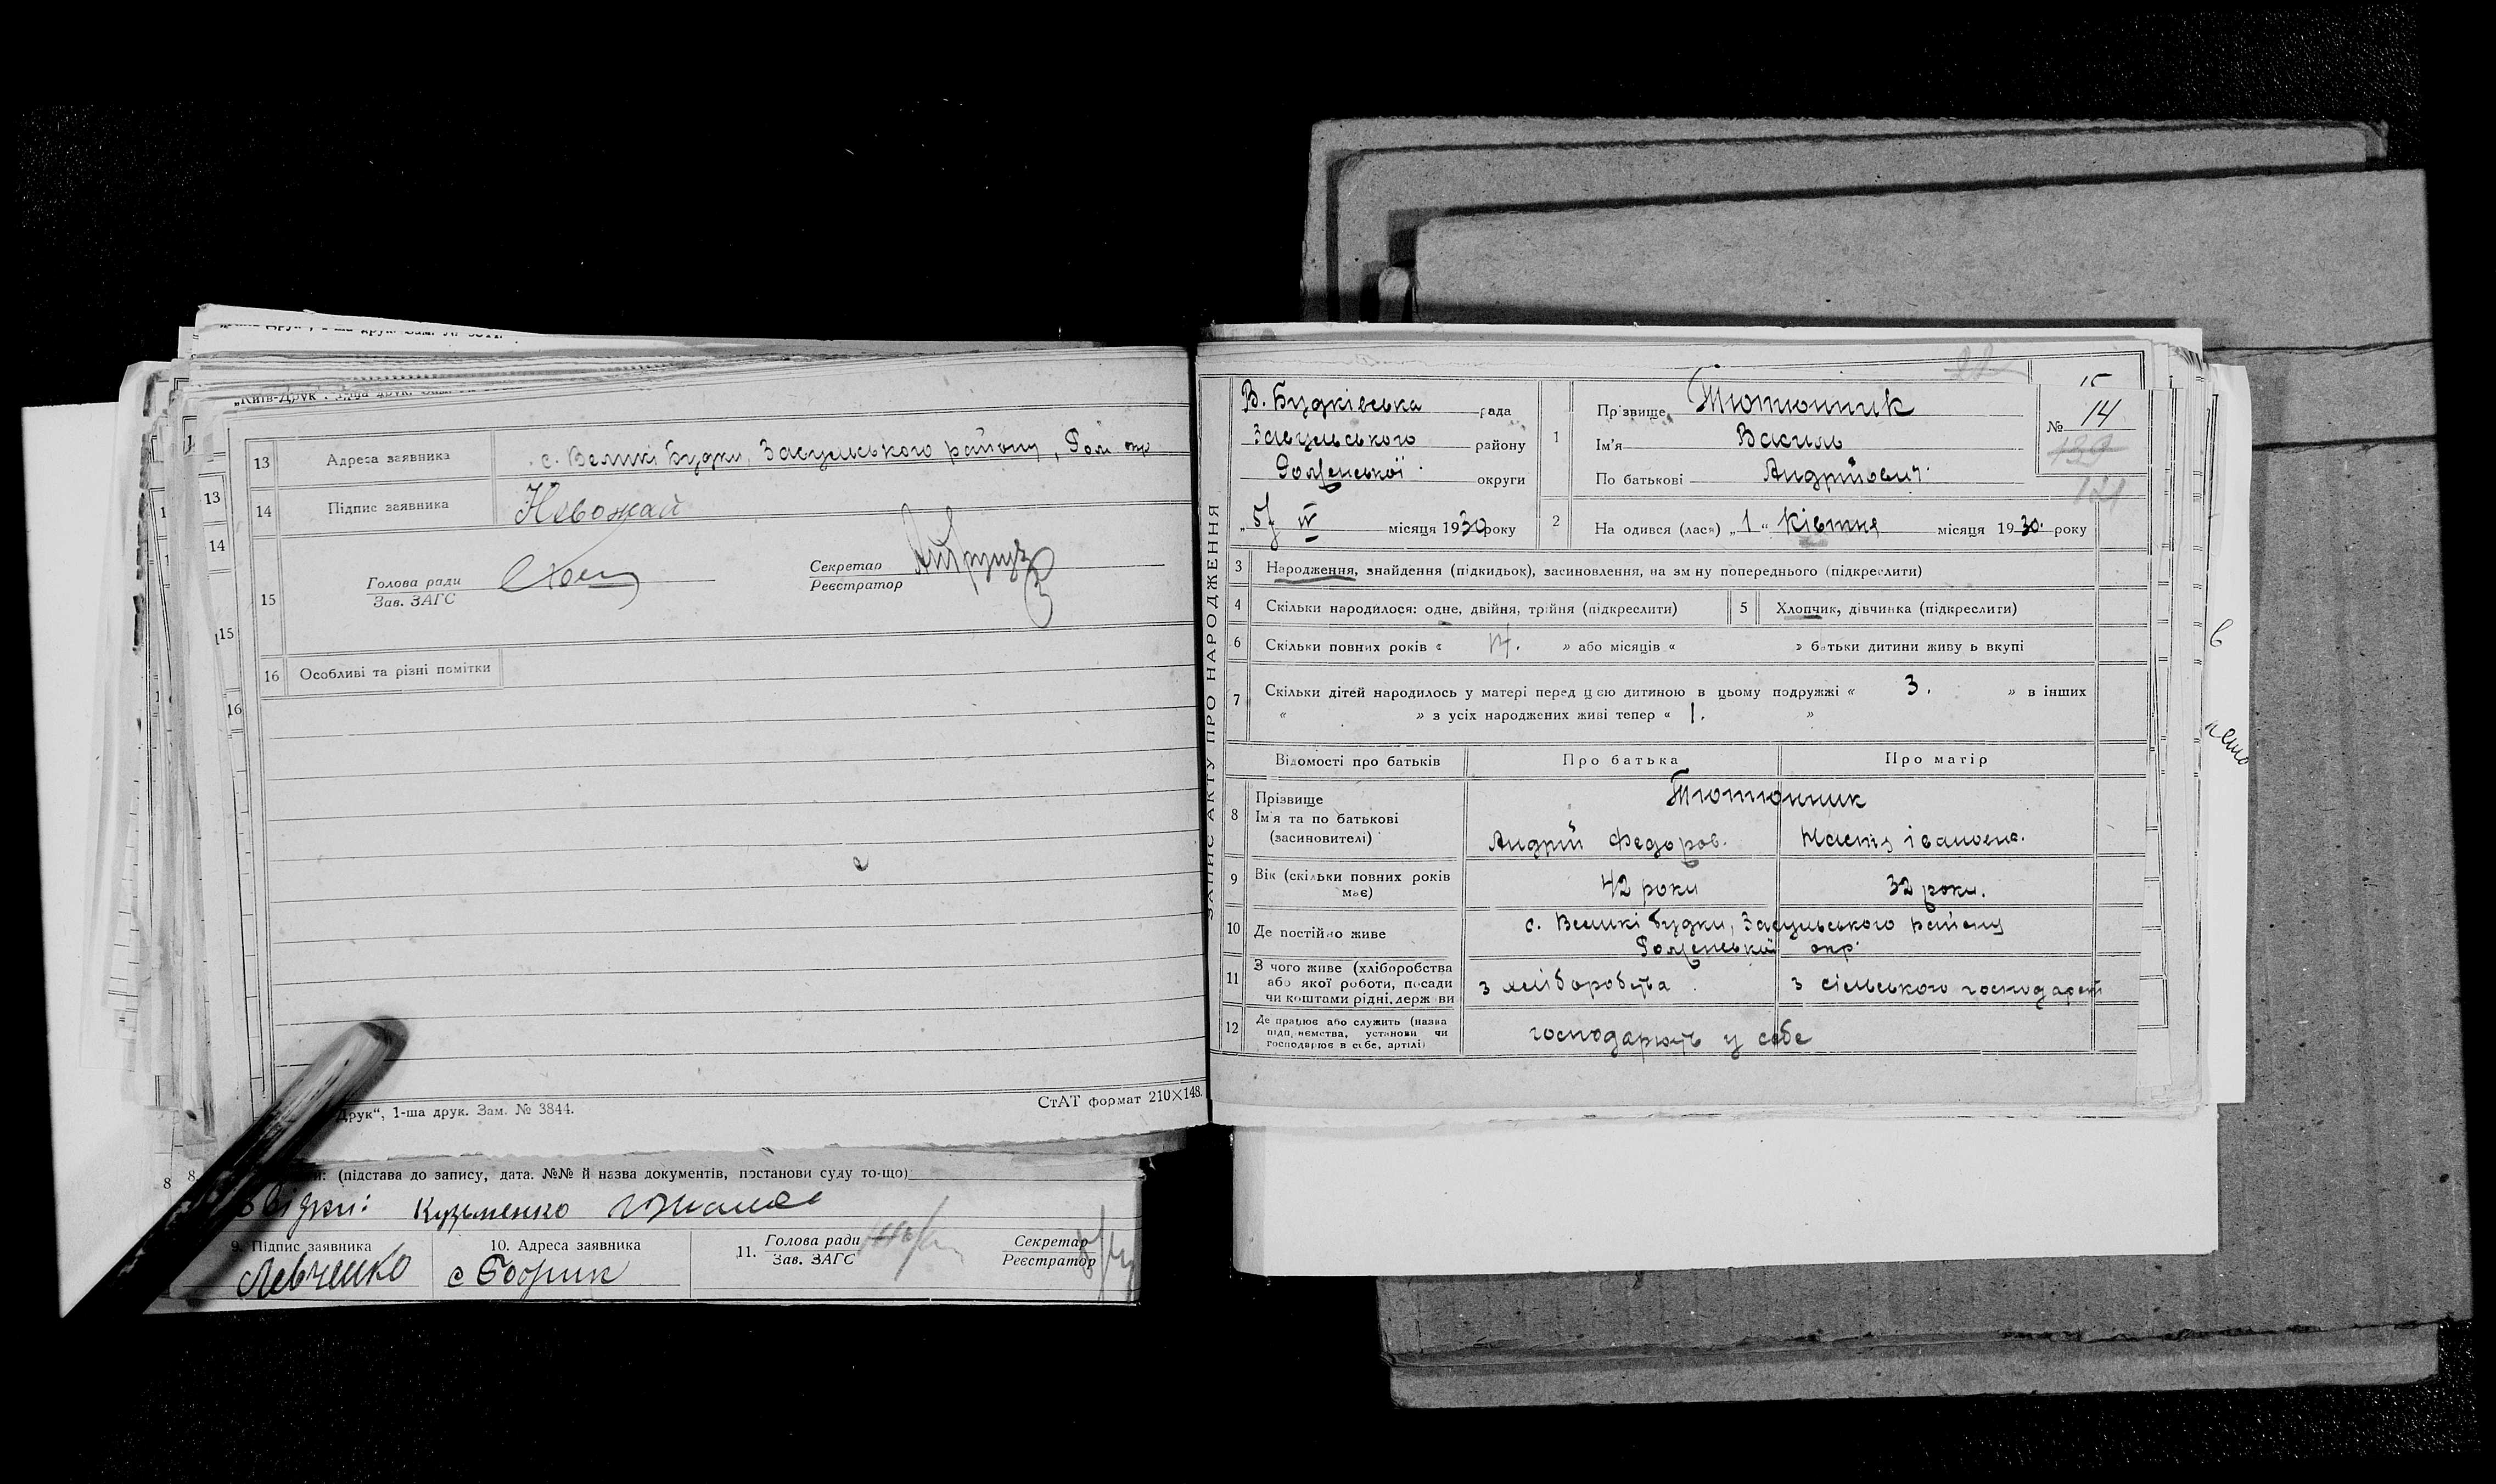 „Київ-Друк“, 1-ша друк. Зам. №
13 Адреса заявника с. Великі Будки, Засульського району, Ром. окр
14 Підпис заявника Небожай
15 Голова ради
Зав. ЗАГС
Секретар
Реєстратор
16 Особливі та різні помітки
Друк“, 1-ша друк. Зам. № 3844.
СтАТ формат 210×148.
(підстава до запису, дата. №№ й назва документів, постанови суду то-що)
Кузьменко
9. Підпис заявника
Левченко
10. Адреса заявника
11. Голова ради
Зав. ЗАГС
Секретар
Реєстратор
ЗАПИС АКТУ ПРО НАРОДЖЕННЯ
В. Будківська рада
Засульського району
Роменської округи
„5“ IV місяця 1930 року
1 Прізвище Тютюнник
Ім'я Василь
По батькові Андрійович
№ 14
15
139
2 На одився (лася) „1“ Квітня місяця 1930. року
3 Народження, знайдення (підкидьок), засиновлення, на зм ну попереднього (підкреслити)
4 Скільки народилося: одне, двійня, трійня (підкреслити)
5 Хлопчик, дівчинка (підкреслити)
6 Скільки повних років « 14. » або місяців « » батьки дитини живу ь вкупі
7 Скільки дітей народилось у матері перед цією дитиною в цьому подружжі « 3. » в інших
« » з усіх народжених живі тепер « 1. »
Відомості про батьків Про батька Про матір
8 Прізвище
Ім'я та по батькові
(засиновителі)
Тютюнник
Андрій Федоров. Настя Івановна.
9 Вік (скільки повних років має) 42 роки 32 роки.
10 Де постійно живе с. Великі Будки, Засульського району
Роменської окр.
11 З чого живе (хліборобства
або якої роботи, посади
чи коштами рідні, держ ви
з хліборобства з сільського господарст
12 Де працює або служить (назва
підп иємства, установи чи
господарює в себе, артілі)
господарюють у себе